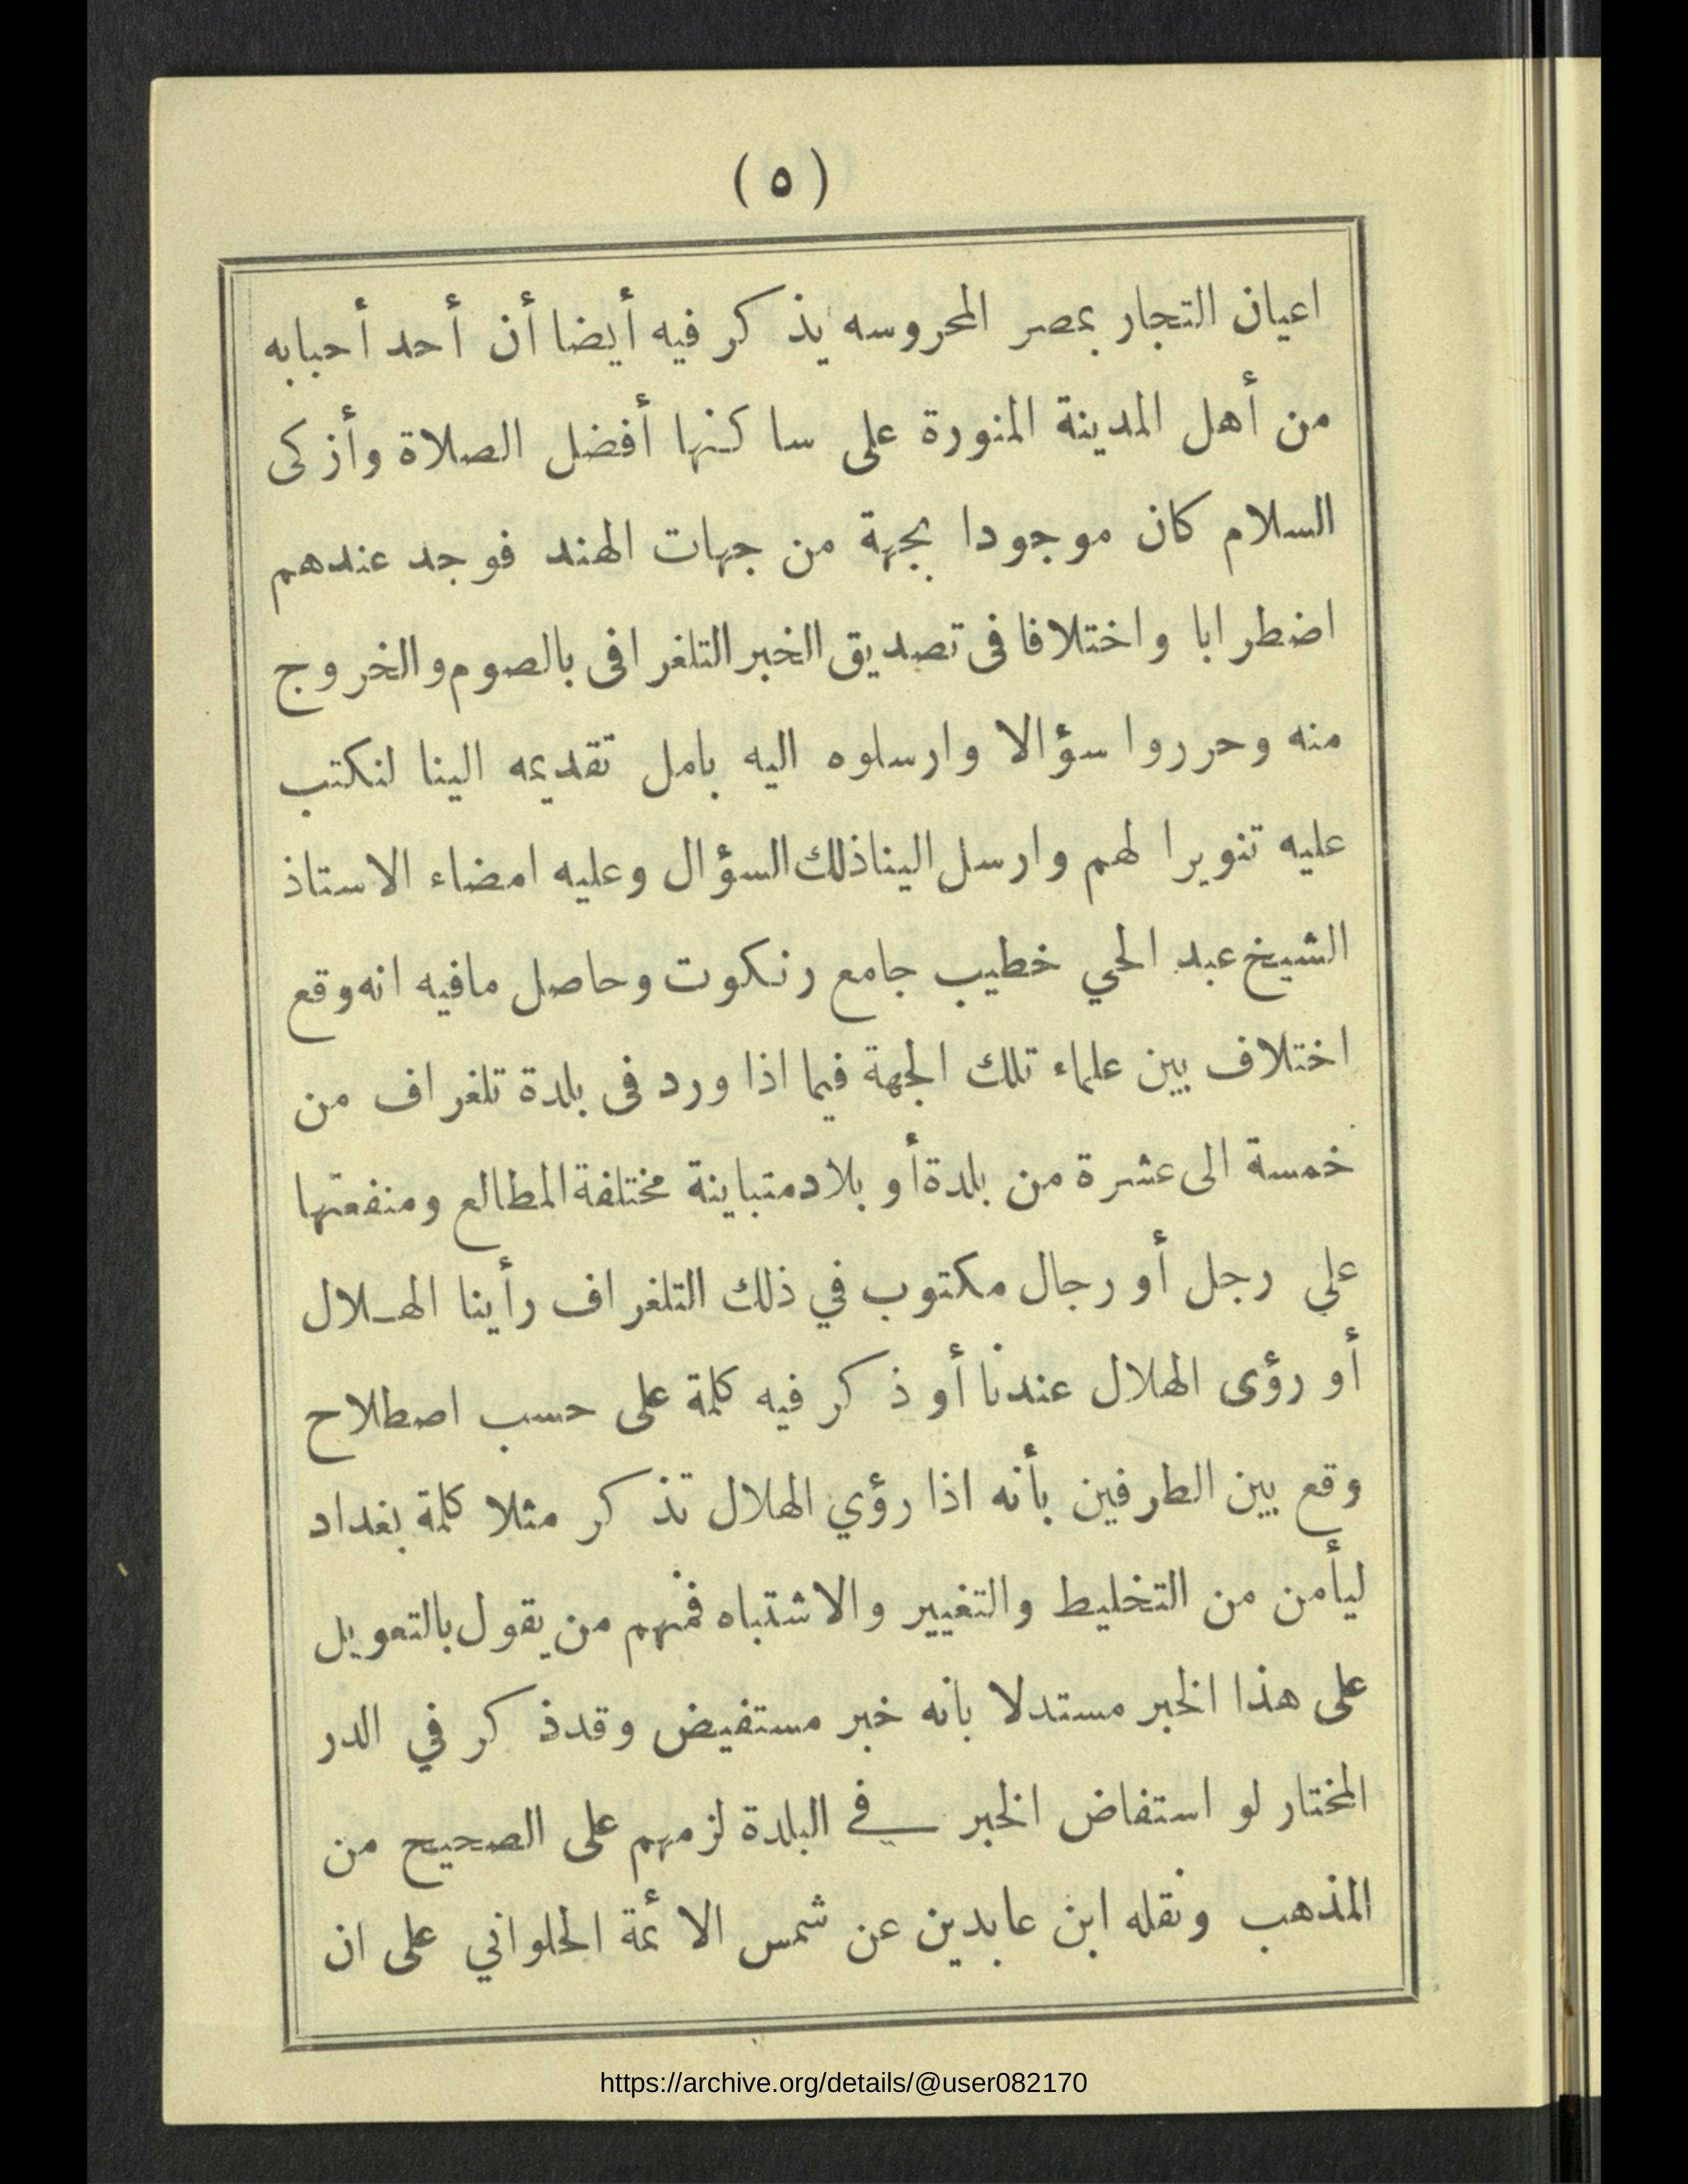 (٥)
اعيان التجار بمصر المحروسه يذكر فيه أيضا أن أحد أحبابه
من أهل المدينة المنورة على ساكنها أفضل الصلاة وأزكى
السلام كان موجودا بجهة من جهات الهند فوجد عندهم
اضطرابا واختلافا فى تصديق الخبر التلغرافى بالصوم والخروج
منه وحرروا سؤالا وارسلوه اليه بامل تقديمه الينا لنكتب
عليه تنويرا لهم وارسل الينا ذلك السؤال وعليه امضاء الاستاذ
الشيخ عبد الحي خطيب جامع رنكوت وحاصل مافيه انه وقع
اختلاف بين علماء تلك الجهة فيما اذا ورد فى بلدة تلغراف من
خمسة الى عشرة من بلدة أو بلاد متباينة مختلفة المطالع ومنفعتها
علي رجل أو رجال مكتوب في ذلك التلغراف رأينا الهـلال
أو رؤى الهلال عندنا أو ذكر فيه كلمة على حسب اصطلاح
وقع بين الطرفين بأنه اذا رؤي الهلال تذكر مثلا كلمة بغداد
ليأمن من التخليط والتغيير والاشتباه فمنهم من يقول بالتعويل
على هذا الخبر مستدلا بانه خبر مستفيض وقد ذكر في الدر
المختار لو استفاض الخبر في البلدة لزمهم على الصحيح من
المذهب ونقله ابن عابدين عن شمس الائمة الحلواني على ان
https://archive.org/details/@user082170